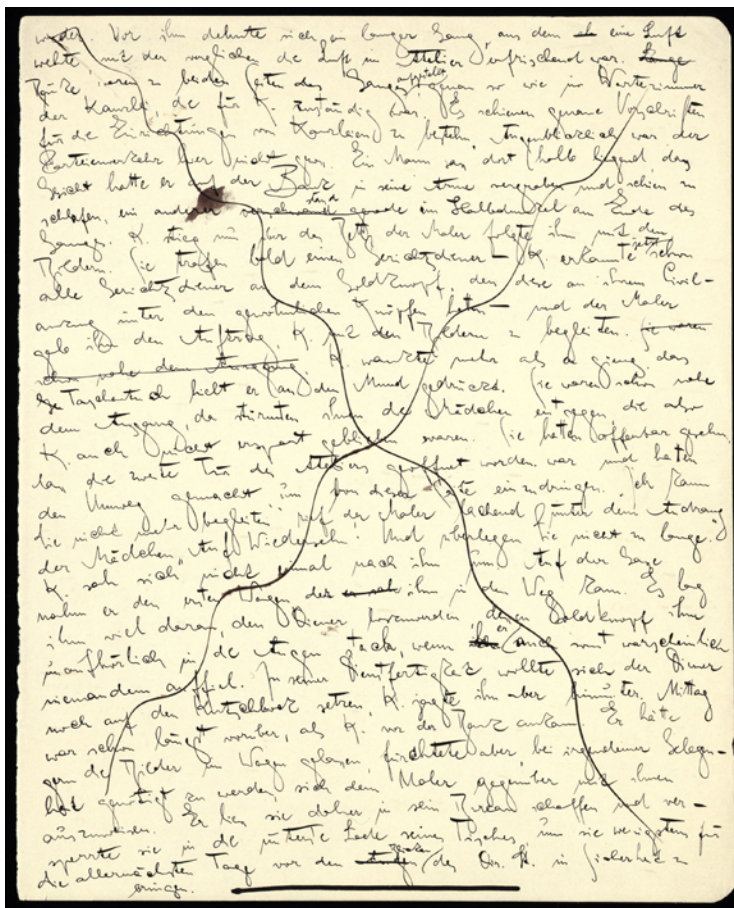 wieder. Vor ihm dehnte sich ein langer Gang, aus dem eine Luft
wehte mit der verglichen die Luft im Atelier erfrischend war. Lange
Bänke waren zu beiden Seiten des Ganges aufgestellt genau so wie im Wartezimmer
der Kanzlei, die für K. zuständig war. Es schienen genaue Vorschriften
für die Einrichtungen von Kanzleien zu bestehn. Augenblicklich war der
Parteienverkehr hier nicht gross. Ein Mann sass dort halb liegend, das
Gesicht hatte er auf der Bank in seine Arme vergraben und schien zu
schlafen, ein anderer stand gerade im Halbdunkel am Ende des
Ganges. K. stieg nun über das Bett, der Maler folgte ihm mit den
Bildern. Sie trafen bald einen Gerichtsdiener – K. erkannte jetzt schon
alle Gerichtsdiener an dem Goldknopf, den diese an ihrem Civil-
anzug unter den gewöhnlichen Knöpfen haben – und der Maler
gab ihm den Auftrag, K. mit den Bildern zu begleiten. Sie waren
schon nahe dem Ausgang. K. wankte mehr als er gieng, das
Taschentuch hielt er an den Mund gedrückt. Sie waren schon nahe
dem Ausgang, da stürmten ihnen die Mädchen entgegen, die also
K. auch nicht erspart geblieben waren. Sie hatten offenbar gesehn,
dass die zweite Tür des Ateliers geöffnet worden war und hatten
den Umweg gemacht um von dieser Seite einzudringen. "Ich kann
Sie nicht mehr begleiten" rief der Maler lachend unter dem Andrang
der Mädchen, "Auf Wiedersehn! Und überlegen Sie nicht zu lange!"
K. sah sich nicht einmal nach ihm um. Auf der Gasse
nahm er den ersten Wagen der er sah ihm in den Weg kam. Es lag
ihm viel daran, den Diener loszuwerden, dessen Goldknopf ihm
unaufhörlich in die Augen stach, wenn er auch sonst warscheinlich
niemandem auffiel. In seiner Dienstfertigkeit wollte sich der Diener
noch auf den Kutschbock setzen, K. jagte ihn aber hinunter. Mittag
war schon längst vorüber, als K. vor der Bank ankam. Er hätte
gern die Bilder im Wagen gelassen, fürchtete aber, bei irgendeiner Gelegen-
heit genötigt zu werden, sich dem Maler gegenüber mit ihnen
auszuweisen. Er liess sie daher in sein Bureau schaffen und ver-
sperrte sie in die unterste Lade seines Tisches, um sie wenigstens für
die allernächsten Tage vor den Blicken des Dir. St. in Sicherheit zu
bringen.